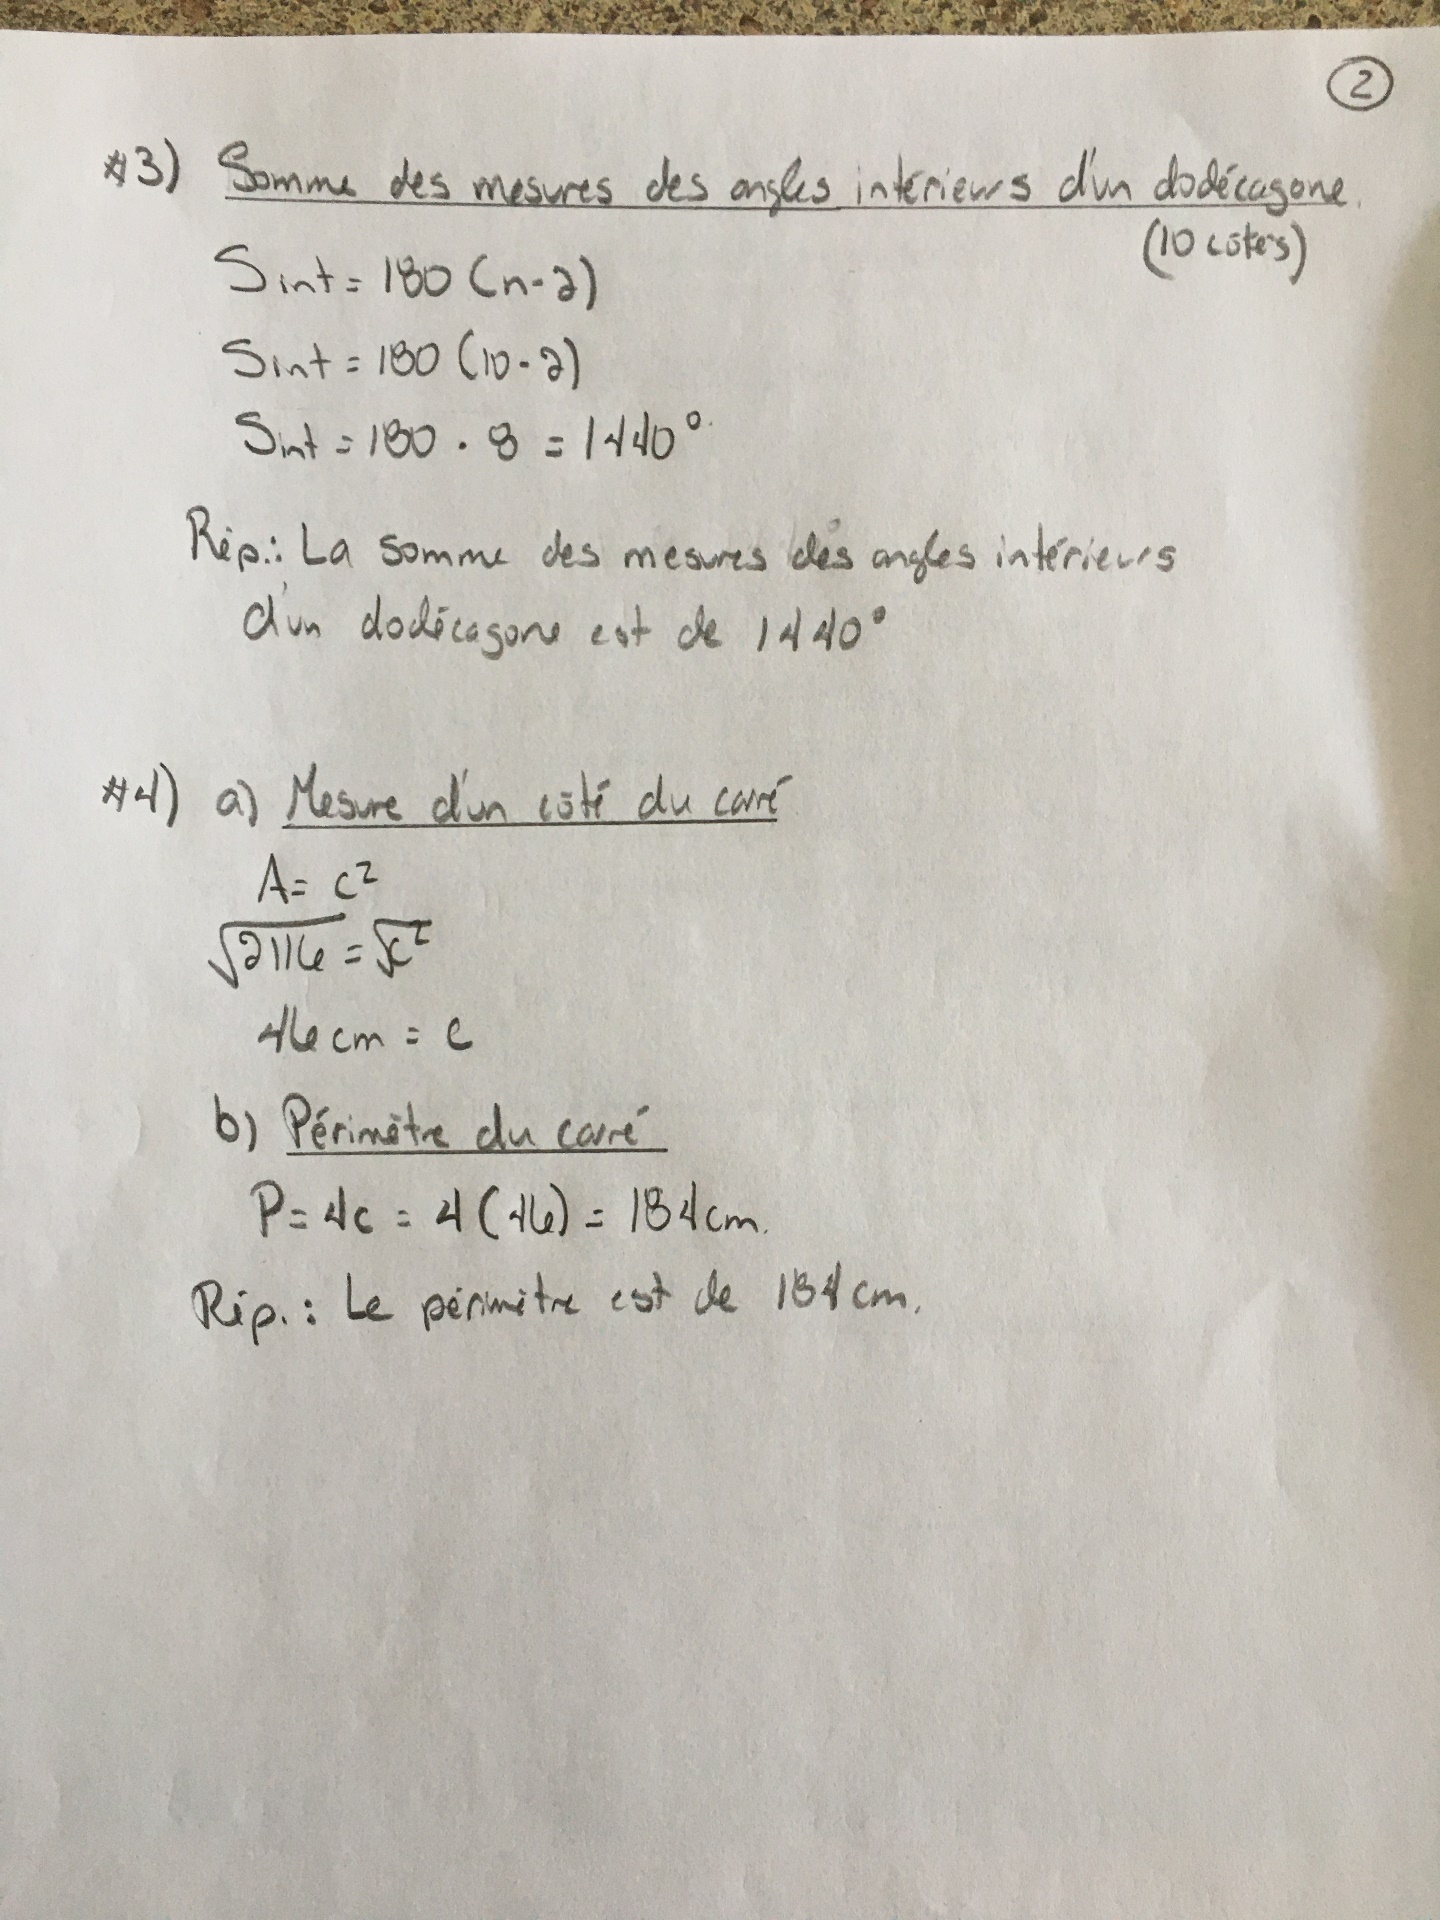 2
#3) Somme des mesures des angles intérieurs d'un dodécagone.
(10 côtés)
Sint = 180 (n-2)
Sint = 180 (10-2)
Sint = 180 · 8 = 1440°
Rép.: La somme des mesures des angles intérieurs
d'un dodécagone est de 1440°
#4) a) Mesure d'un côté du carré
A = c²
√2116 = √c²
46 cm = c
b) Périmètre du carré
P = 4c = 4 (46) = 184 cm.
Rép.: Le périmètre est de 184 cm.